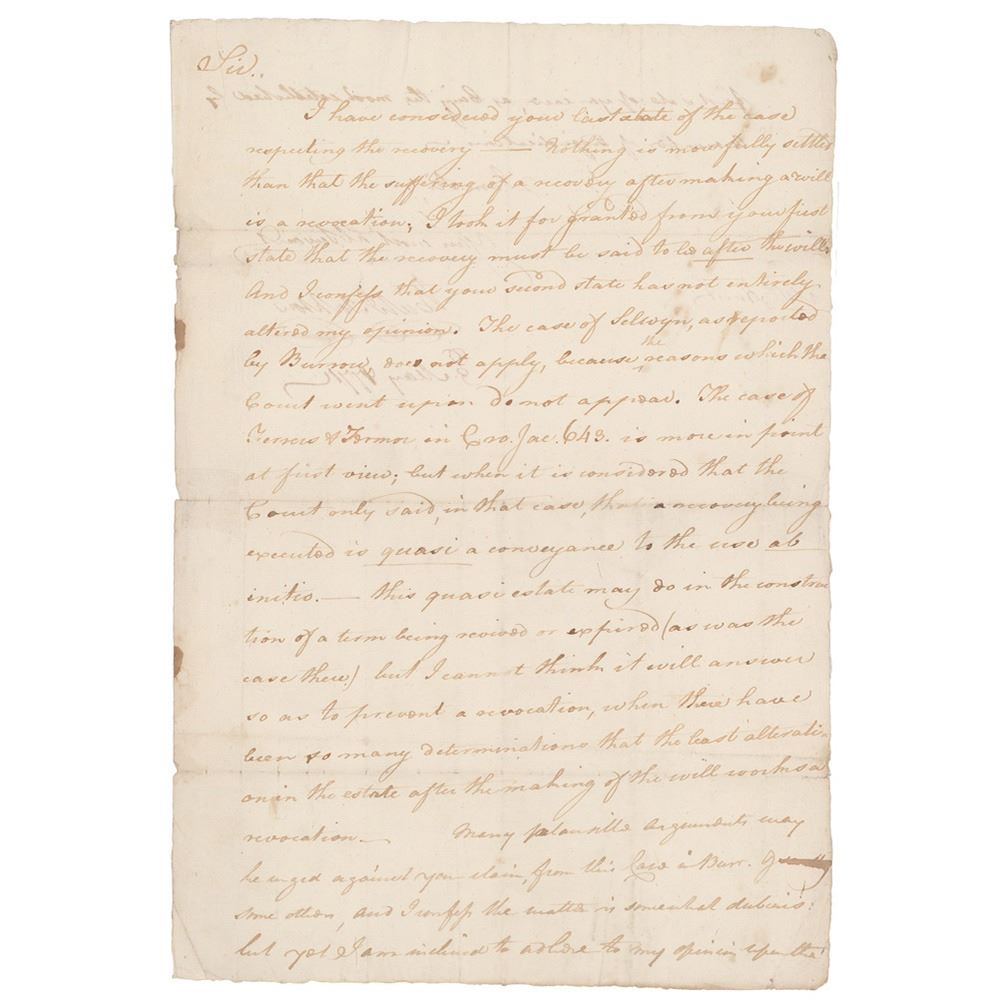 Sir.
I have considered your last state of the case
respecting the recovery — Nothing is more fully settled
than that the suffering of a recovery after making a will
is a revocation; I took it for granted from your first
state that the recovery must be said to be after the will.
And I confess that your second state has not entirely
altered my opinion. The case of Selwyn, as reported
by Burrow does not apply, because the reasons which the
Court went upon do not appear. The case of
Ferrers & Fermor in Cro. Jac. 643. is more in point
at first view; but when it is considered that the
Court only said, in that case, that a recovery being
executed is quasi a conveyance to the use ab
initio. — this quasi estate may do in the construc
tion of a term being revived or expired (as was the
case there) but I cannot think it will answer
so as to prevent a revocation, when there have
been so many determinations that the least alterati-
on in the estate after the making of the will works a
revocation. — Many plausible arguments may
be urged against your claim, from this Case in Burr. &
some others, and I confess the matter is somewhat dubious:
but yet I am inclined to adhere to my opinion upon the